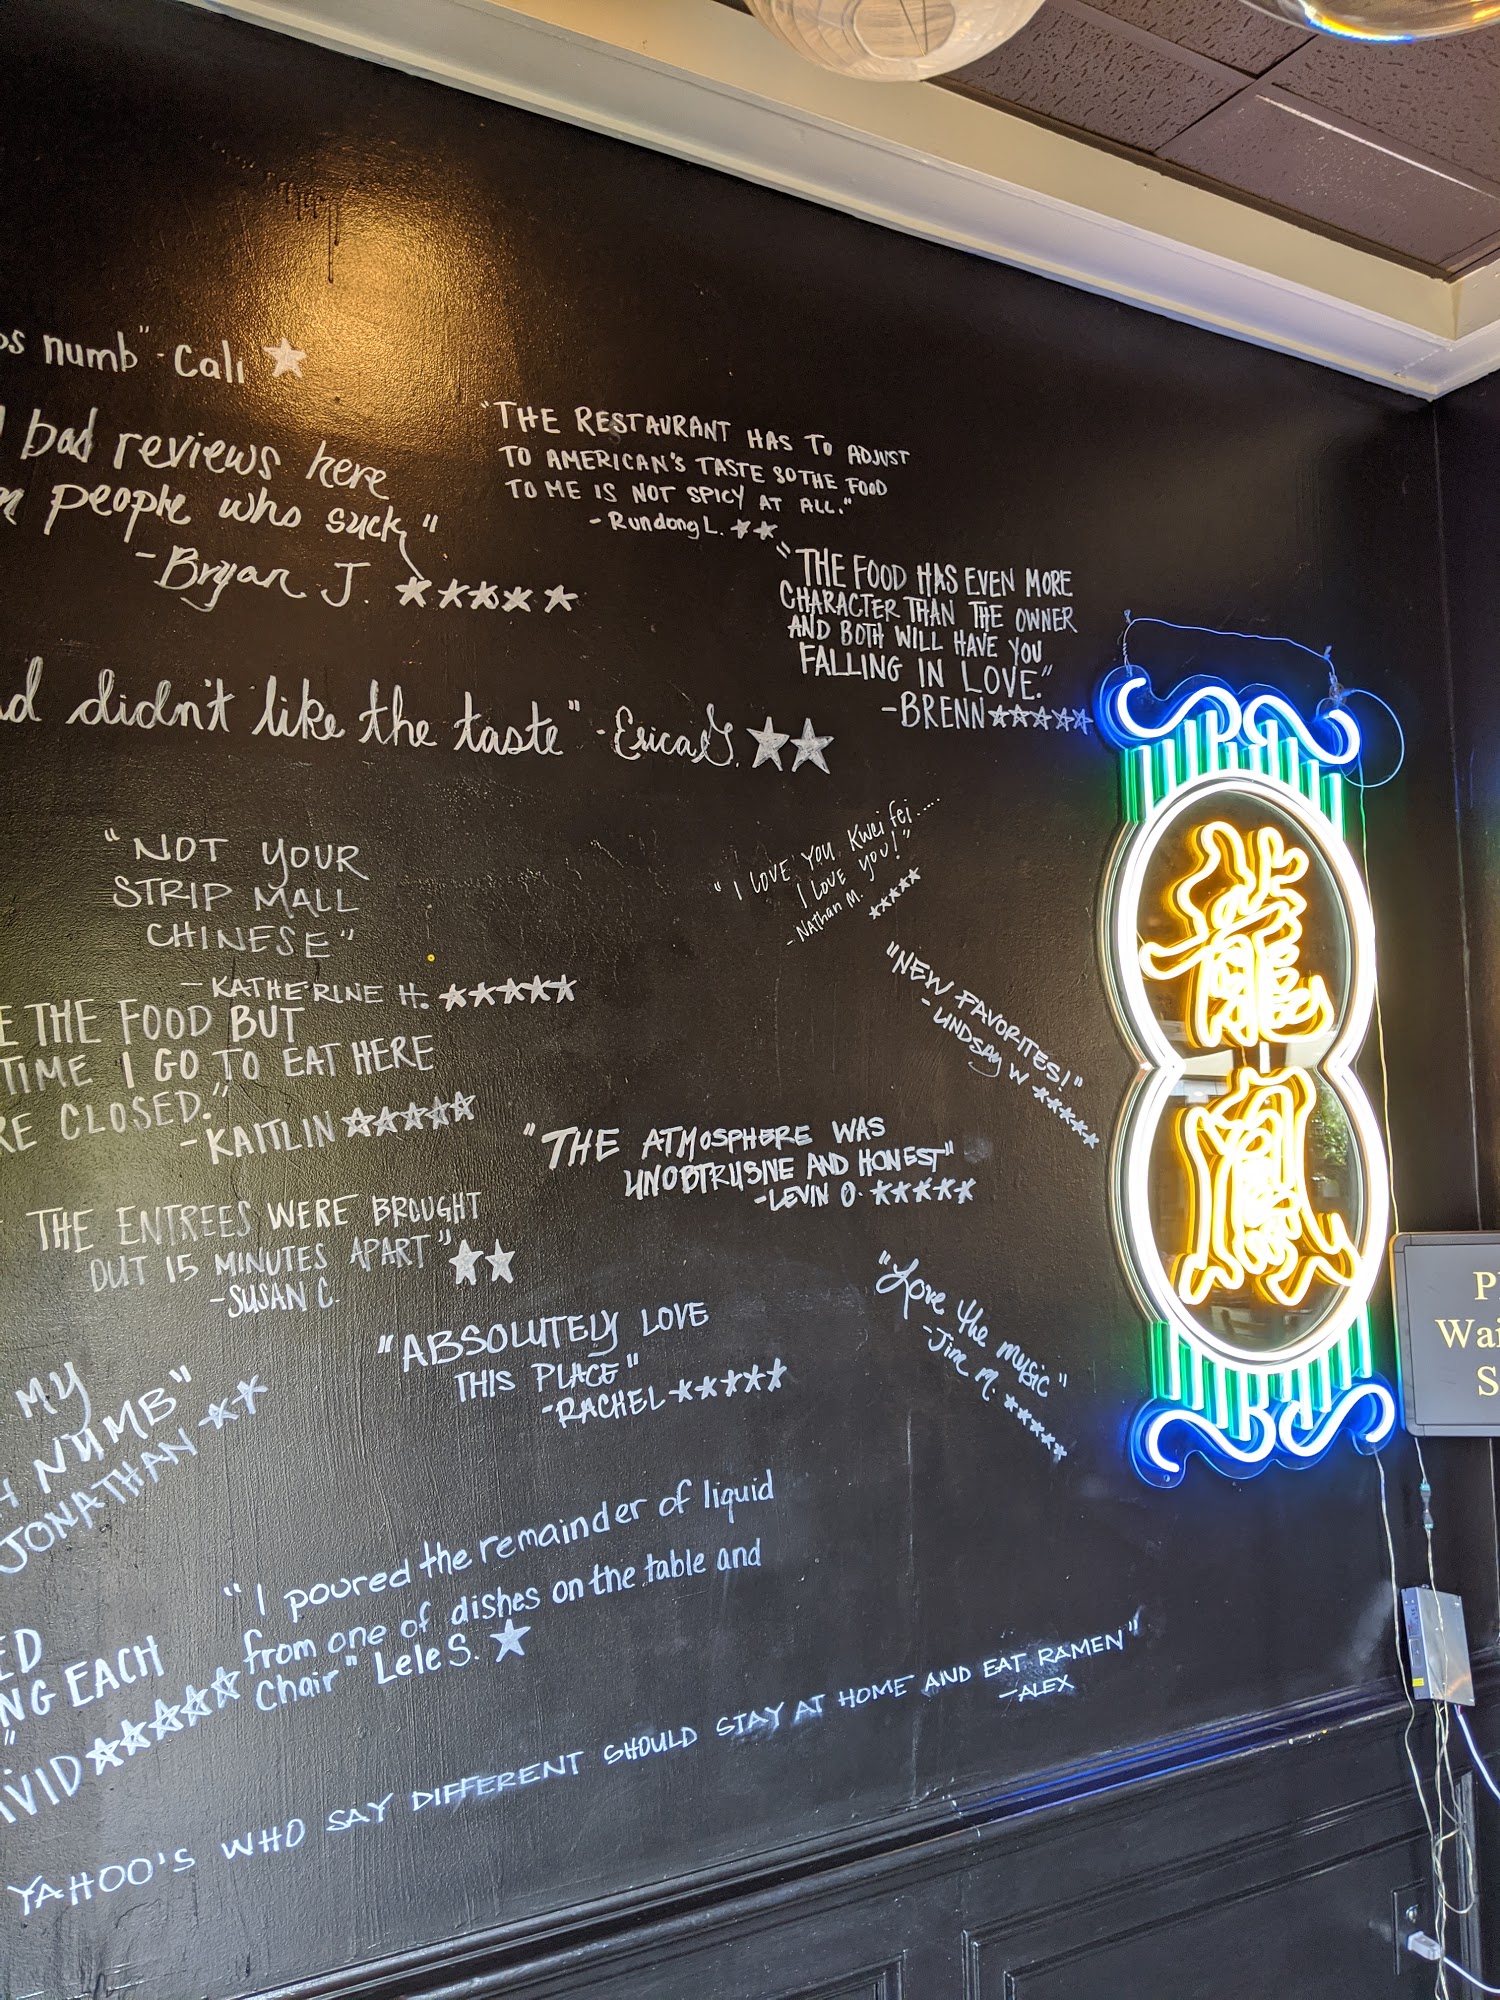 numb" - Cali ★
bad reviews here
people who suck"
- Bryan J. ★★★★★
"THE RESTAURANT HAS TO ADJUST
TO AMERICAN'S TASTE SO THE FOOD
TO ME IS NOT SPICY AT ALL."
- Rundong L. ★★
"THE FOOD HAS EVEN MORE
CHARACTER THAN THE OWNER
AND BOTH WILL HAVE YOU
FALLING IN LOVE."
- BRENN ★★★★★
didn't like the taste" - Erica G. ★★
"NOT YOUR
STRIP MALL
CHINESE"
- KATHERINE H. ★★★★★
"I LOVE YOU Kwei fei.....
I LOVE YOU!"
- Nathan M. ★★★★★
"NEW FAVORITES!"
- LINDSAY W ★★★★★
THE FOOD BUT
TIME I GO TO EAT HERE
CLOSED."
- KAITLIN ★★★★★
"THE ATMOSPHERE WAS
UNOBTRUSIVE AND HONEST"
- LEVIN O. ★★★★★
THE ENTREES WERE BROUGHT
OUT 15 MINUTES APART" ★★
- SUSAN C.
"ABSOLUTELY LOVE
THIS PLACE"
- RACHEL ★★★★★
"Love the music"
- Jim M. ★★★★★
MY
NUMB"
JONATHAN ★★
"I poured the remainder of liquid
from one of dishes on the table and
Chair" Lele S. ★
EACH
★★★★★
YAHOO'S WHO SAY DIFFERENT SHOULD STAY AT HOME AND EAT RAMEN"
- ALEX
龍
鳳